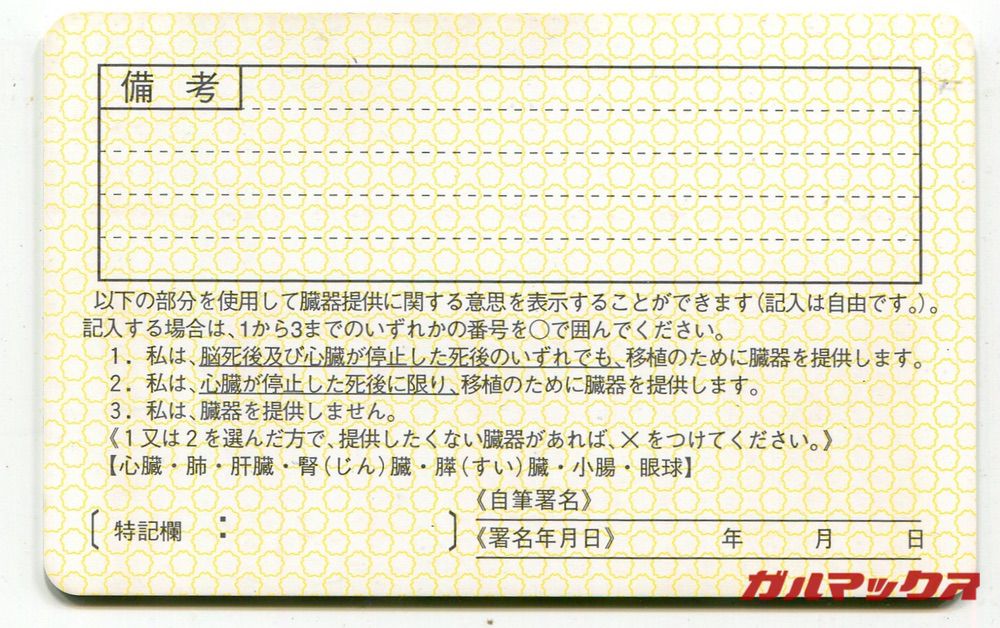 備考
以下の部分を使用して臓器提供に関する意思を表示することができます(記入は自由です。)。
記入する場合は、1から3までのいずれかの番号を○で囲んでください。
1. 私は、脳死後及び心臓が停止した死後のいずれでも、移植のために臓器を提供します。
2. 私は、心臓が停止した死後に限り、移植のために臓器を提供します。
3. 私は、臓器を提供しません。
《1又は2を選んだ方で、提供したくない臓器があれば、×をつけてください。》
【心臓・肺・肝臓・腎(じん)臓・膵(すい)臓・小腸・眼球】
《自筆署名》
〔特記欄 : 〕
《署名年月日》 年 月 日
ガルマックス